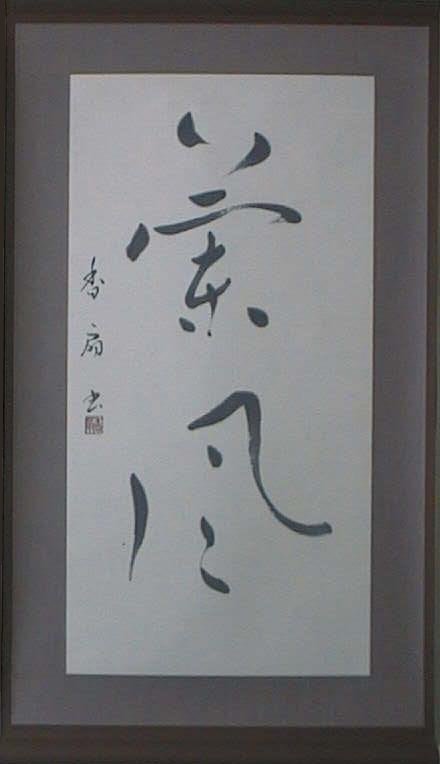 蘭風
香扇書